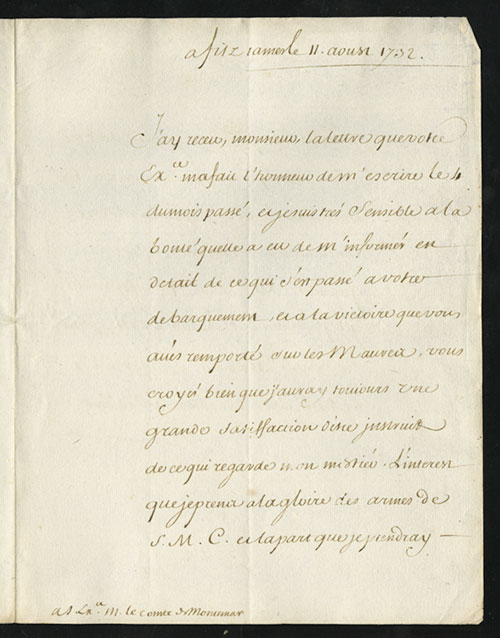 a fitz james le 11. aoust 1732.
J'ay receu, monsieur, la lettre que votre
Ex.ce ma fait l'honneur de m'escrire le 4
du mois passé, et je suis trés sensible a la
bonté quelle a eu de m'informér en
detail de ce qui s'est passé a votre
debarquement, et a la victoire que vous
avés remporté sur les Maures, vous
croyés bien que j'auray toujours une
grande satisfaction d'être instruit
de ce qui regarde mon metiér. L'interest
que je prens a la gloire des armes de
S. M. C. et la part que je prendray
a S. Ex.ce M. le Comte de Montemar